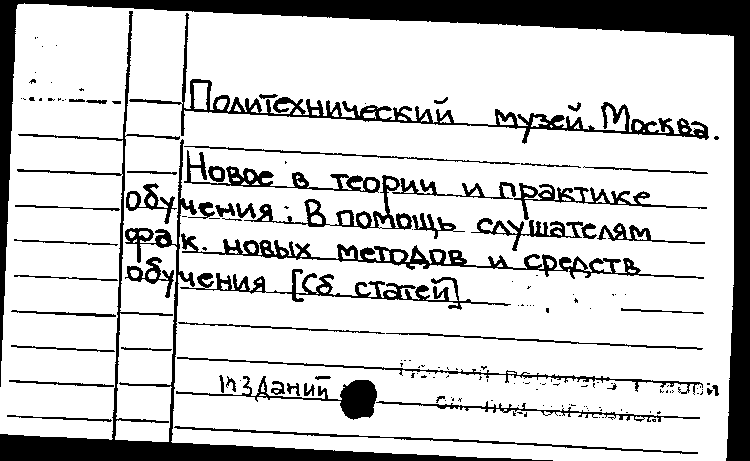 Политехнический музей. Москва.
Новое в теории и практике
обучения: В помощь слушателям
фак. новых методов и средств
обучения. [Сб. статей].
изданий
см. под заглавием